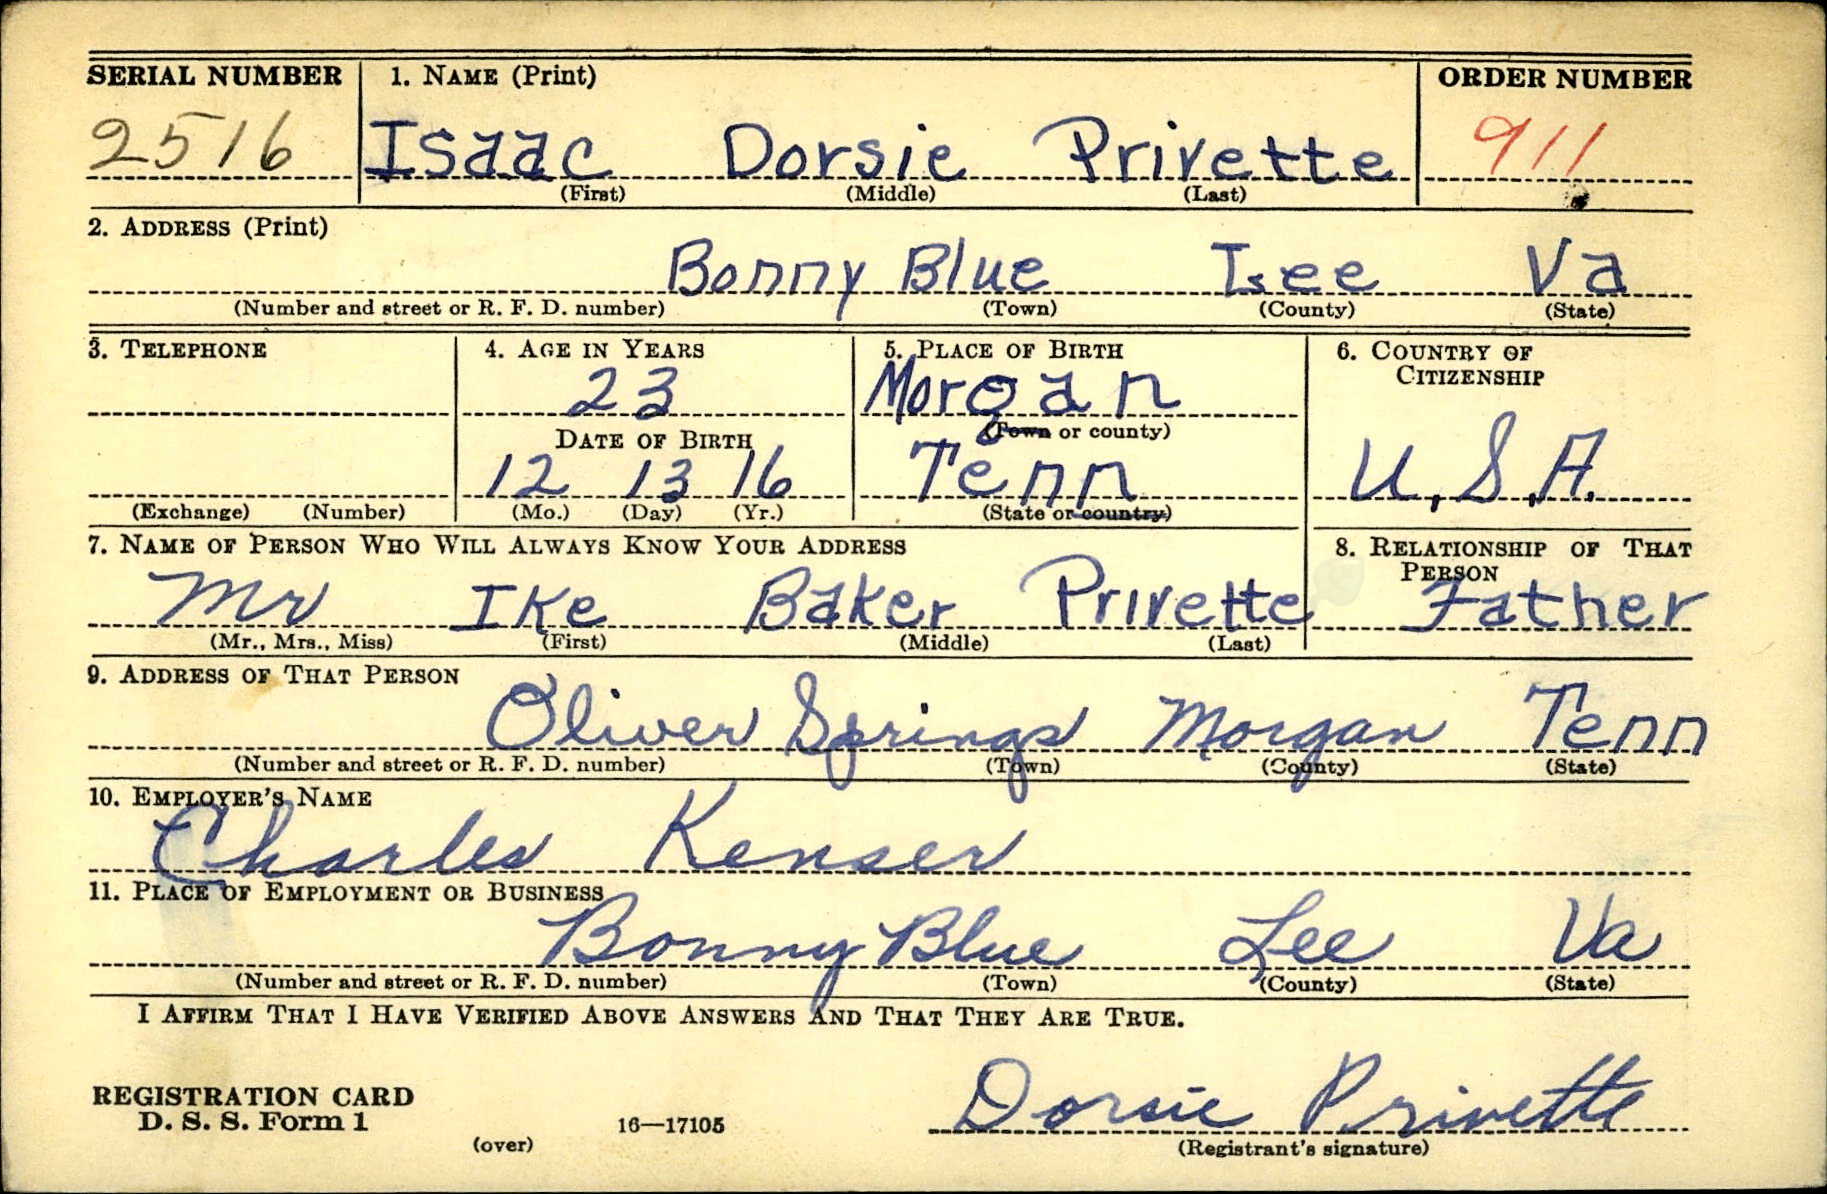 SERIAL NUMBER 1. NAME (Print) ORDER NUMBER
2516 Isaac Dorsie Privette 911
(First) (Middle) (Last)
2. ADDRESS (Print)
Bonny Blue Lee Va
(Number and street or R. F. D. number) (Town) (County) (State)
3. TELEPHONE 4. AGE IN YEARS 5. PLACE OF BIRTH 6. COUNTRY OF
CITIZENSHIP
23 Morgan
DATE OF BIRTH (Town or county)
12 13 16 Tenn U.S.A.
(Exchange) (Number) (Mo.) (Day) (Yr.) (State or country)
7. NAME OF PERSON WHO WILL ALWAYS KNOW YOUR ADDRESS 8. RELATIONSHIP OF THAT
PERSON
Mr Ike Baker Privette Father
(Mr., Mrs., Miss) (First) (Middle) (Last)
9. ADDRESS OF THAT PERSON
Oliver Springs Morgan Tenn
(Number and street or R. F. D. number) (Town) (County) (State)
10. EMPLOYER'S NAME
Charles Kenser
11. PLACE OF EMPLOYMENT OR BUSINESS
Bonny Blue Lee Va
(Number and street or R. F. D. number) (Town) (County) (State)
I AFFIRM THAT I HAVE VERIFIED ABOVE ANSWERS AND THAT THEY ARE TRUE.
REGISTRATION CARD
D. S. S. Form 1 16—17105 Dorsie Privette
(over) (Registrant's signature)